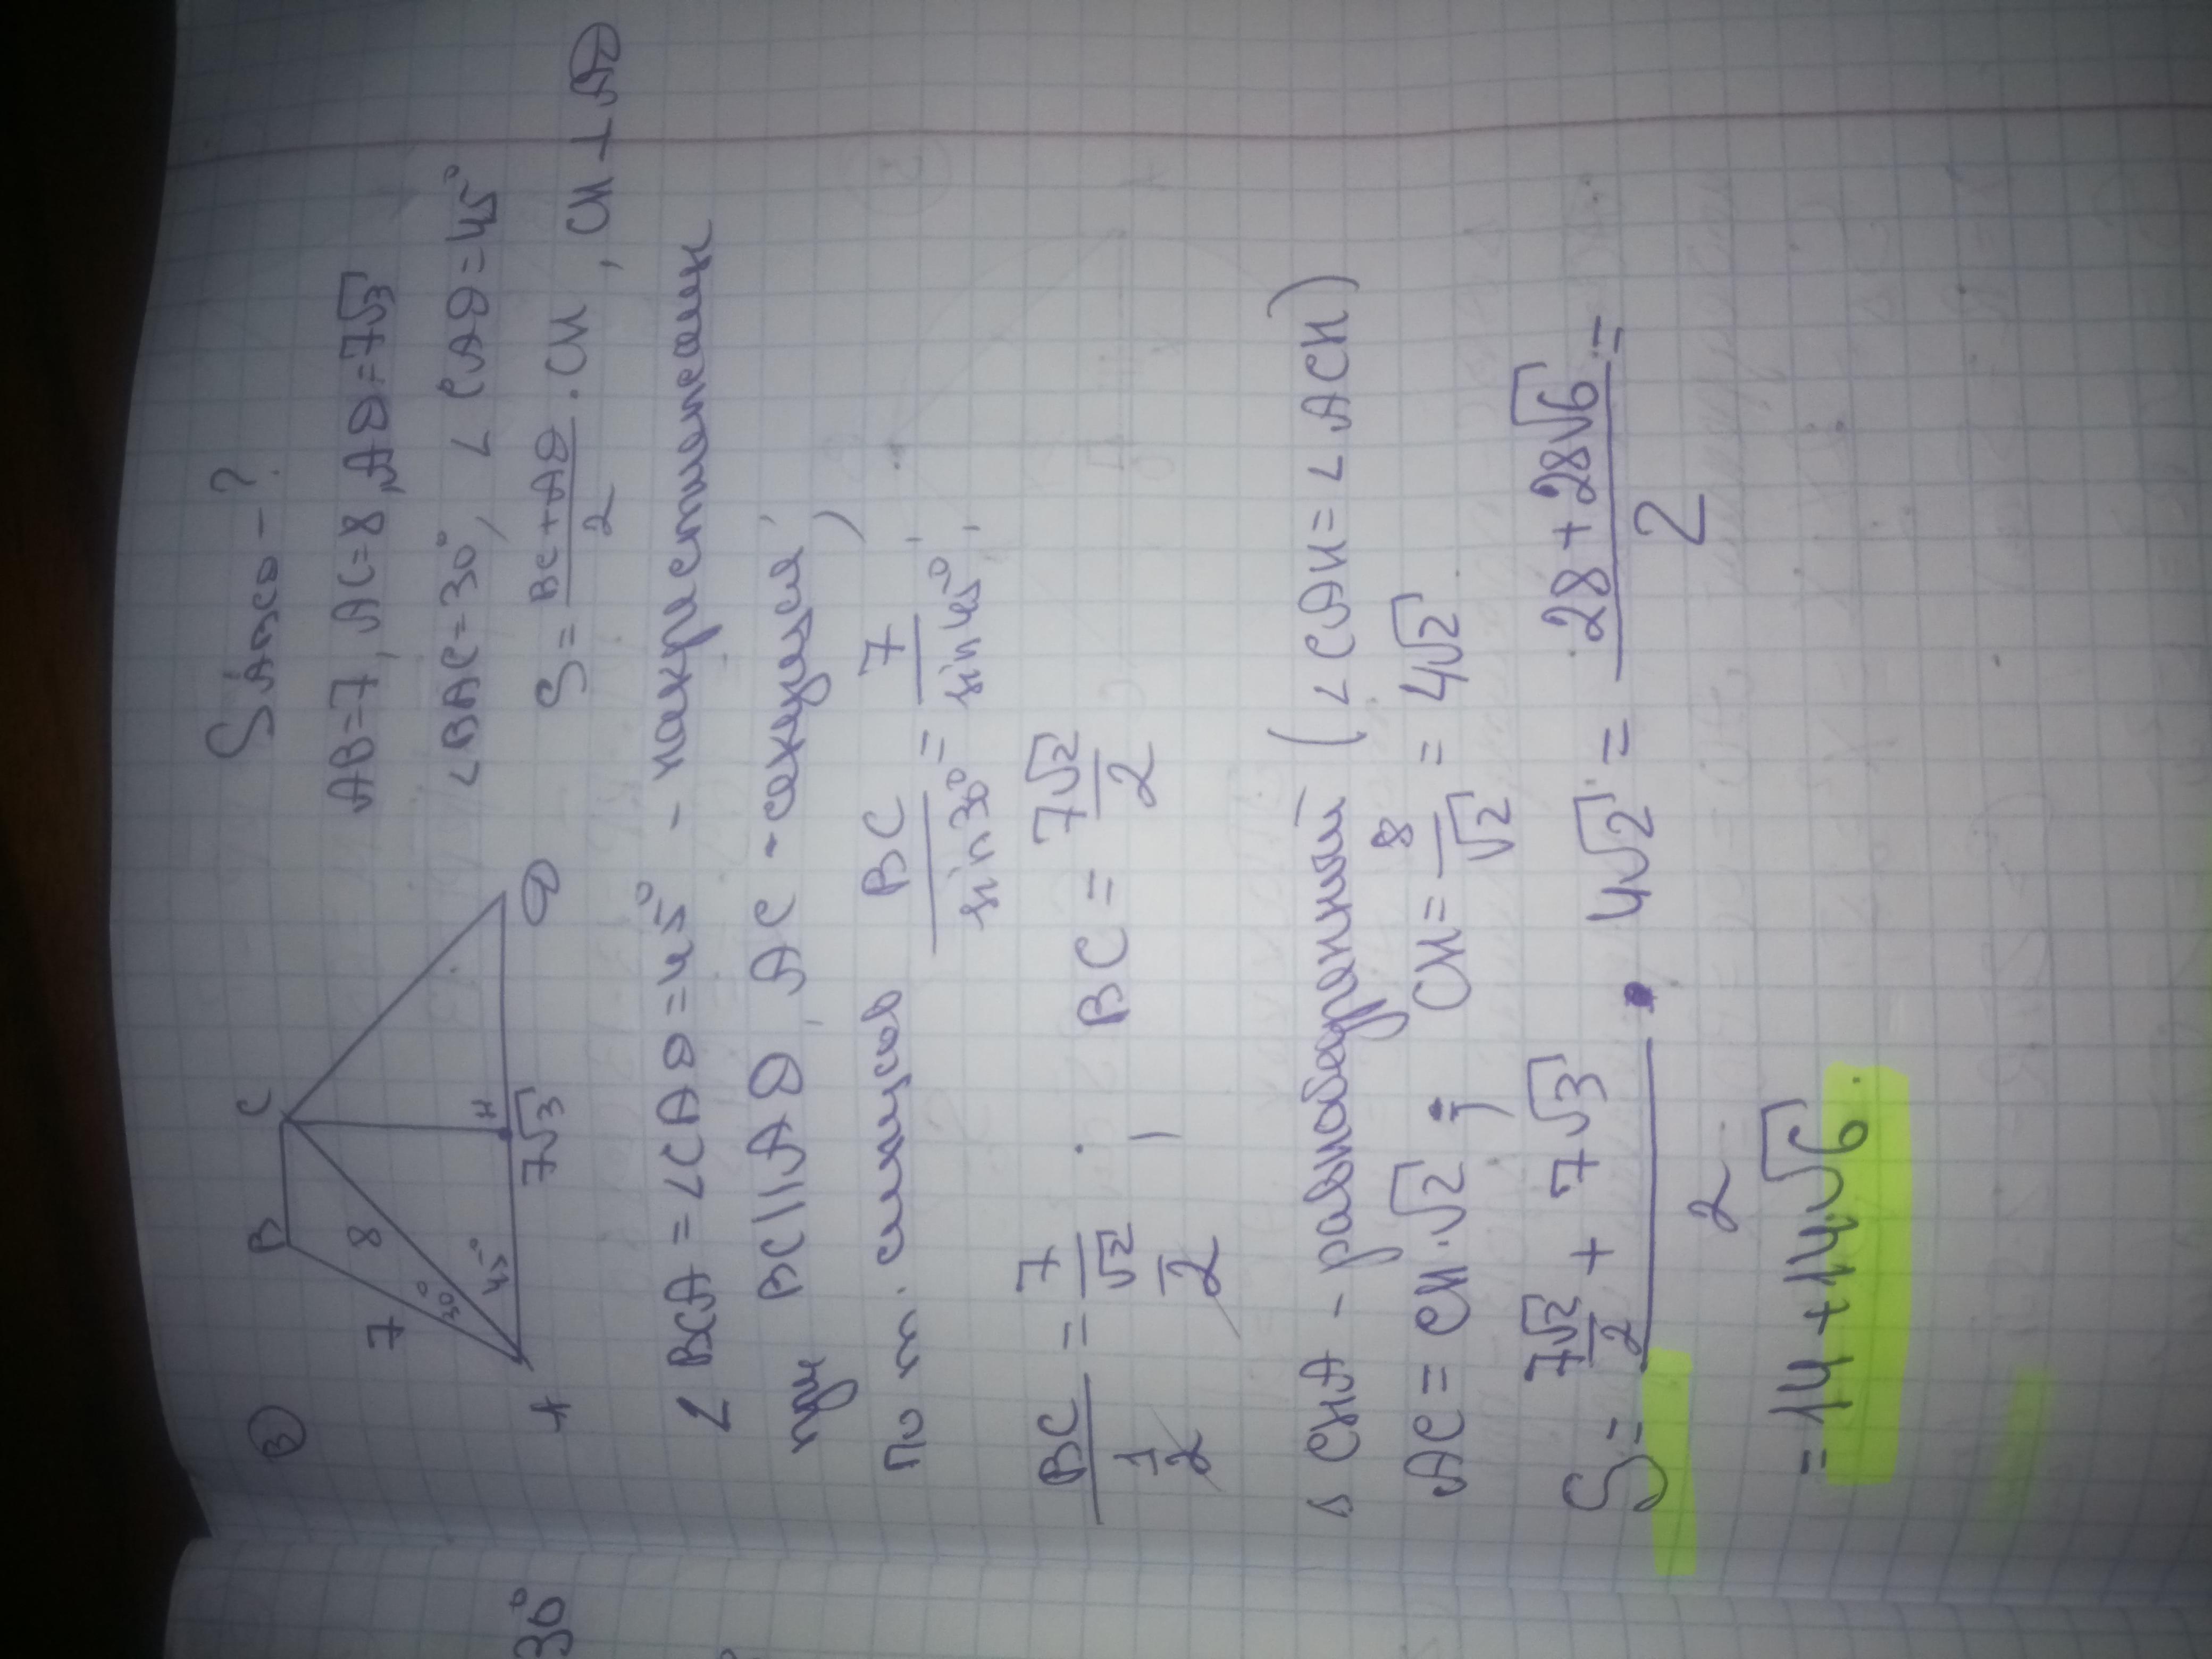 ③
S ABCD - ?
B
C
AB=7, AC=8, AD=7√3
7
8
30°
45°
H
∠BAC=30°, ∠CAD=45°
A
7√3
D
S = (BC+AD)/2 · CH, CH ⊥ AD
∠BCA = ∠CAD = 45° - накрестлежащие
при BC||AD, AC - секущая,
По т. синусов BC/sin30° = 7/sin45°,
BC/(1/2) = 7/(√2/2), BC = 7√2/2
Δ CHA - равнобедренный (∠CAH = ∠ACH)
AC = CH·√2; CH = 8/√2 = 4√2
S = (7√2/2 + 7√3)/2 · 4√2 = (28 + 28√6)/2 =
= 14 + 14√6.
30°